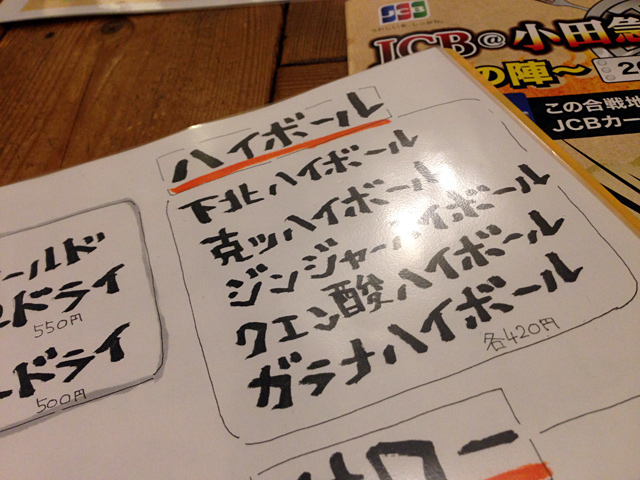 JCB
JCB@小田急
の陣～
この合戦地
JCBカー
ハイボール
下北ハイボール
克ッハイボール
ジンジャーハイボール
クエン酸ハイボール
ガラナハイボール
各420円
ールド
ドライ
550円
ードライ
500円